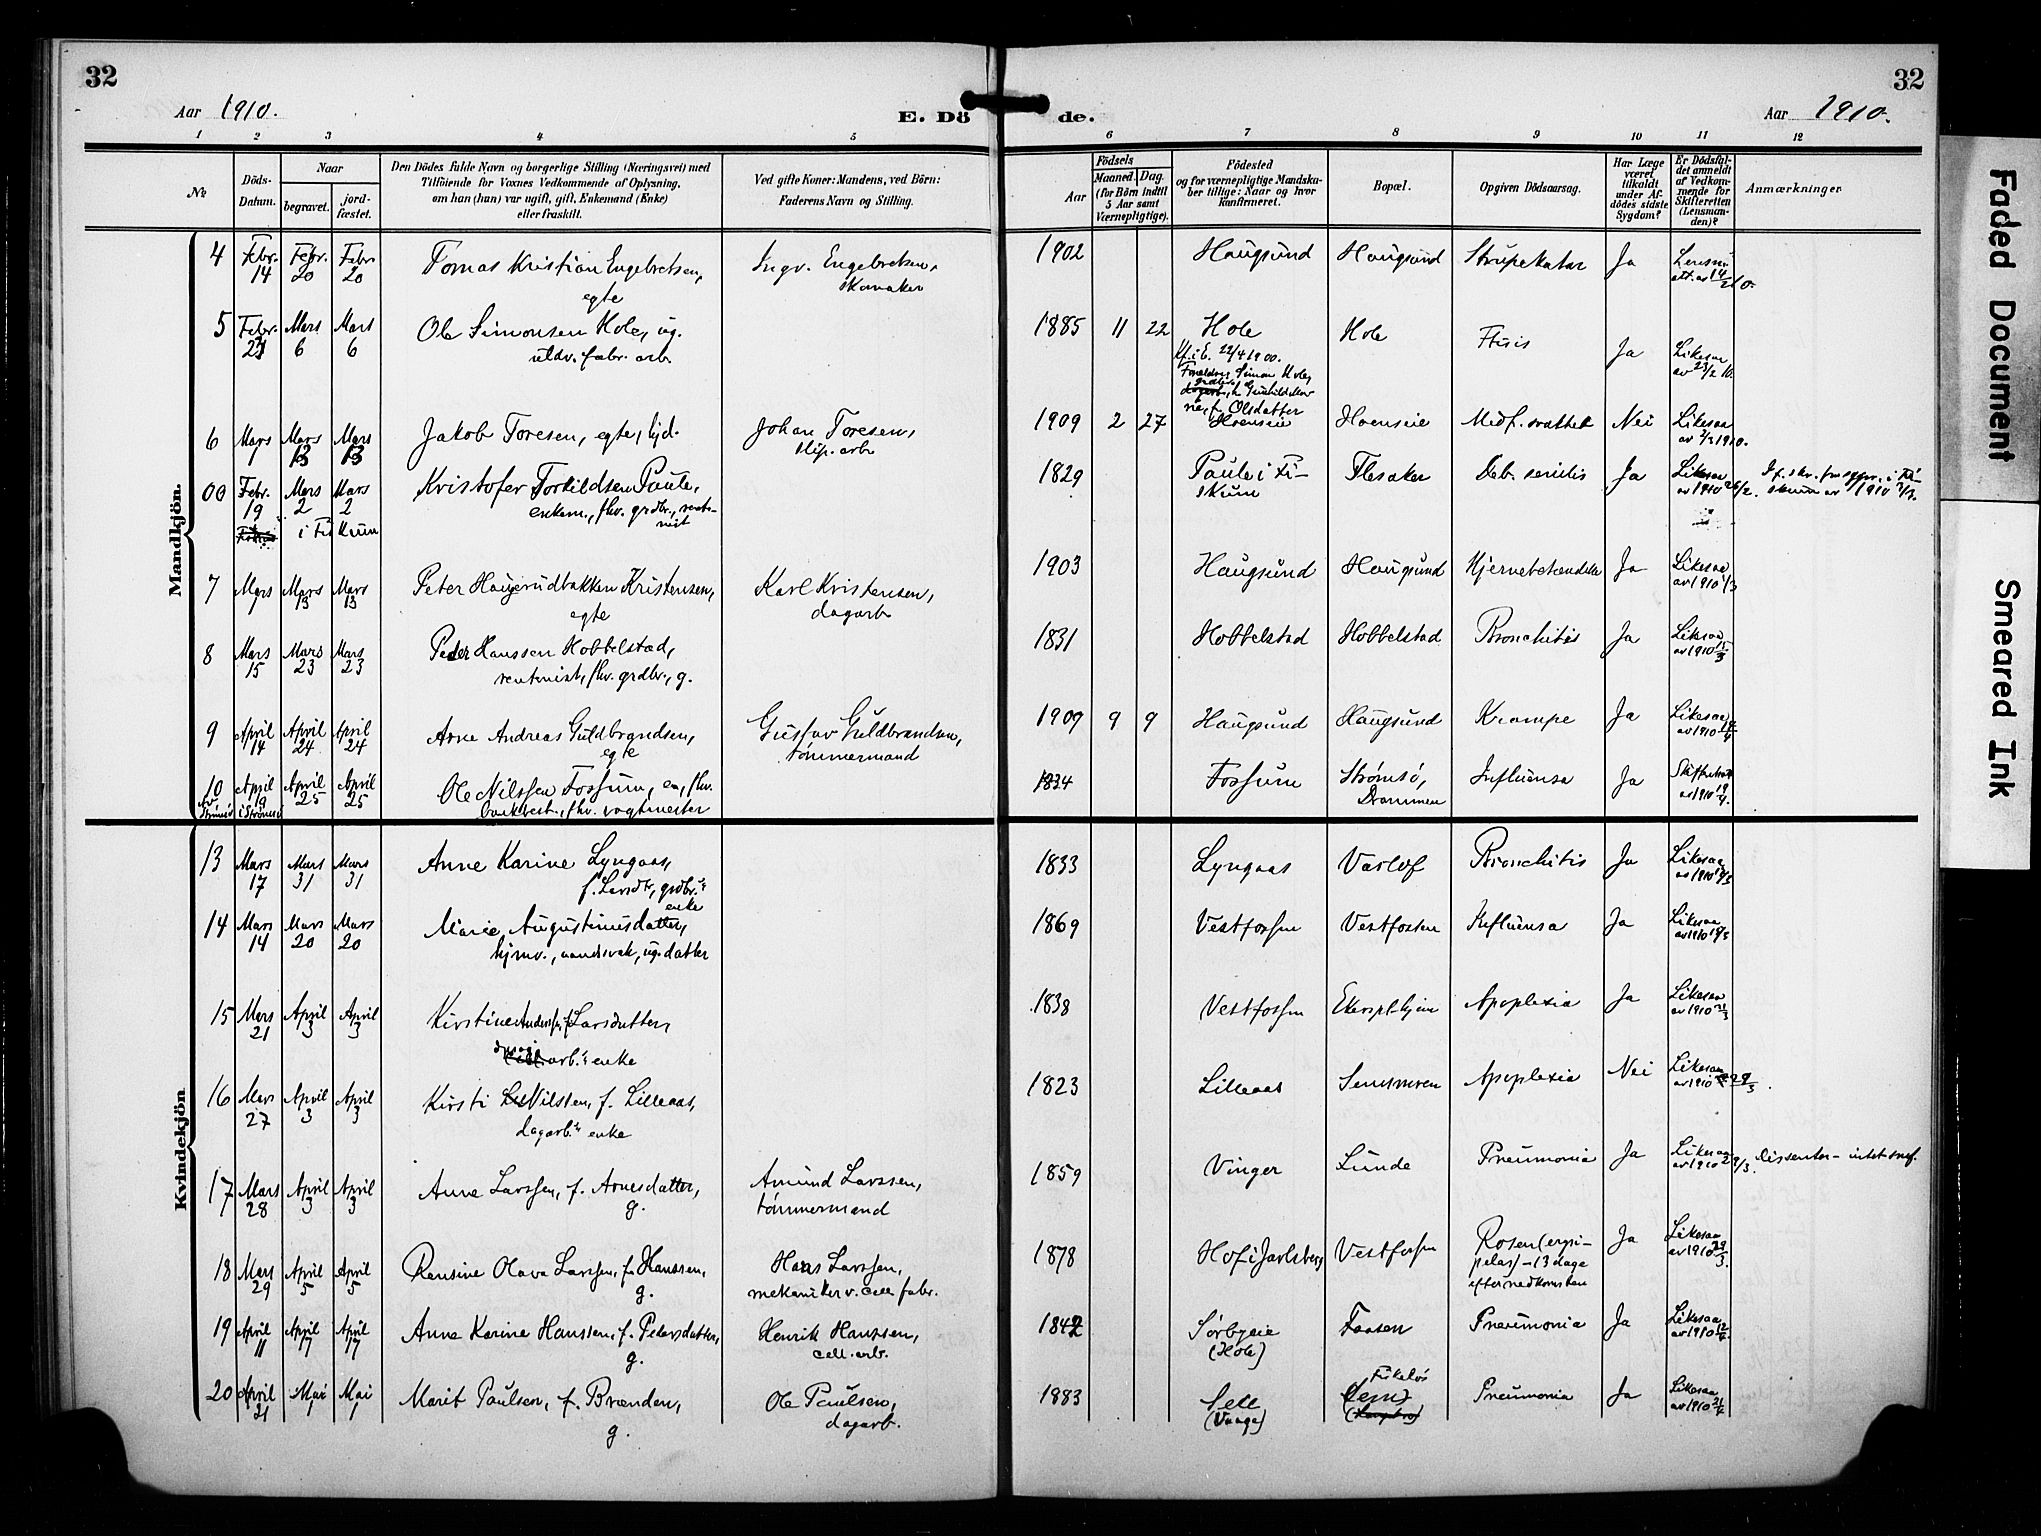 32
32
Aar 1910.
E. Dö
de.
Aar 1910.
1 2 3 4 5 6 7 8 9 10 11 12
№
Döds-
Datum.
Naar
begravet.
jord-
fæstet.
Den Dödes fulde Navn og borgerlige Stilling (Næringsvei) med
Tilföiende for Voxnes Vedkommende af Oplysning,
om han (hun) var ugift, gift, Enkemand (Enke)
eller fraskilt.
Ved gifte Koner: Mandens, ved Börn:
Faderens Navn og Stilling.
Födsels
Aar
Maaned. Dag.
(for Börn indtil
5 Aar samt
Værnepligtige).
Födested
og for værnepligtige Mandska-
ber tillige: Naar og hvor
konfirmeret.
Bopæl.
Opgiven Dödsaarsag.
Har Læge
været
tilkaldt
under Af-
dödes sidste
Sygdom?
Er Dödsfal-
det anmeldt
af Vedkom-
mende for
Skifteretten
(Lensman-
den)?
Anmærkninger
Mandkjön.
4 Febr. 14 Febr. 20 Febr 20 Tomas Kristian Engebretsen, Ingv. Engebretsen, 1902 Haugsund Haugsund Strupekatar Ja Lensm.
egte skomaker
5 Febr. 21 Mars 6 Mars 6 Ole Simonsen Hole, ug. 1885 11 22 Hole Hole Ftisis Ja Likesaa av 23/2 10.
uldv. fabr. arb.
Kf. i E. 22/4 1900.
Forældre, Simon Hole,
Olsdatter
6 Mars 1 Mars 13 Mars 13 Jakob Toresen, egte, hjd. Johan Toresen, 1909 2 27 Hoenseie Hoenseie Medf. svakhet Nei Likesaa
slip. arb av 2/3 1910.
00 Febr. 19 Mars 2 Mars 2 Kristofer Torkildsen Paule, 1829 Paule i Fi- Flesaker Deb. senilis Ja Likesaa
enkem., fhv. grdbr., rent- skum av 1910 26/2.
nist
i Fiskum
7 Mars Mars 13 Mars 13 Peter Haugerudbakken Kristensen, Karl Kristensen, 1903 Haugsund Haugsund Hjernebetændelse Ja Likesaa
egte dagarb av 1910 1/3
8 Mars 15 Mars 23 Mars 23 Peder Hanssen Hobbelstad, 1831 Hobbelstad Hobbelstad Bronchitis Ja Likesaa
rentenist, fhv. grdbr., g. av 1910 15/3
9 April 14 April 24 April 24 Arne Andreas Guldbrandsen, Gustav Guldbrandsen, 1909 9 9 Haugsund Haugsund Krampe Ja Likesaa
egte tömmermand av 1910 14/4
10 April 19 April 25 April 25 Ole Nilssen Fossum, em, fhv. 1834 Fossum Strømsø, Influensa Ja Skifteret
i Strömsö fhv. vagtmester Drammen av 1910 19/4.
Kvindekjön
13 Mars 17 Mars 31 Mars 31 Anne Karine Lyngaas, 1833 Lyngaas Varlof Bronchitis Ja Likesaa
f. Larsdtr, grdbr.s
enke
14 Mars 14 Mars 20 Mars 20 Marie Augustinusdatter, 1869 Vestfossen Vestfossen Influensa Ja Likesaa
hjmv., aandssvak, ug. datter
15 Mars 21 April 3 April 3 Kirstine Anderssen, f. Larsdatter, 1838 Vestfossen Ekerspl.hjem Apoplexia Ja Likesaa
arb.s enke av 1910 21/3
16 Mars 27 April 3 April 3 Kirsti Nilssen, f. Lilleaas, 1823 Lilleaas Semsmoen Apoplexia Nei Likesaa
dagarb.s enke av 1910 29/3.
17 Mars 28 April 3 April 3 Anne Larssen, f. Arnesdatter, Amund Larssen, 1859 Vinger Lunde Pneumonia Ja Likesaa
g. tömmermand av 1910 29/3. Dissenter - intet
18 Mars 29 April 5 April 5 Rensine Olava Larssen, f. Hanssen, Hans Larssen, 1878 Hof i Jarlsberg Vestfossen Rosen (erysi- Ja Likesaa
g. mekaniker v. cell. fabr. pelas) - (3 dage av 1910 29/3.
efter nedkomsten
19 April 11 April 17 April 17 Anne Karine Hanssen, f. Petersdatter, Henrik Hanssen, 1842 Sørbyeie Faasen Pneumonia Ja Likesaa
g. cell. arb. (Hole) av 1910 12/4.
20 April 21 Mai 1 Mai 1 Marit Paulsen, f. Brænden, Ole Paulsen, 1883 Sell Pneumonia Ja Likesaa
g. dagarb. (Vaage) av 1910 21/4
Faded Document
Smeared Ink